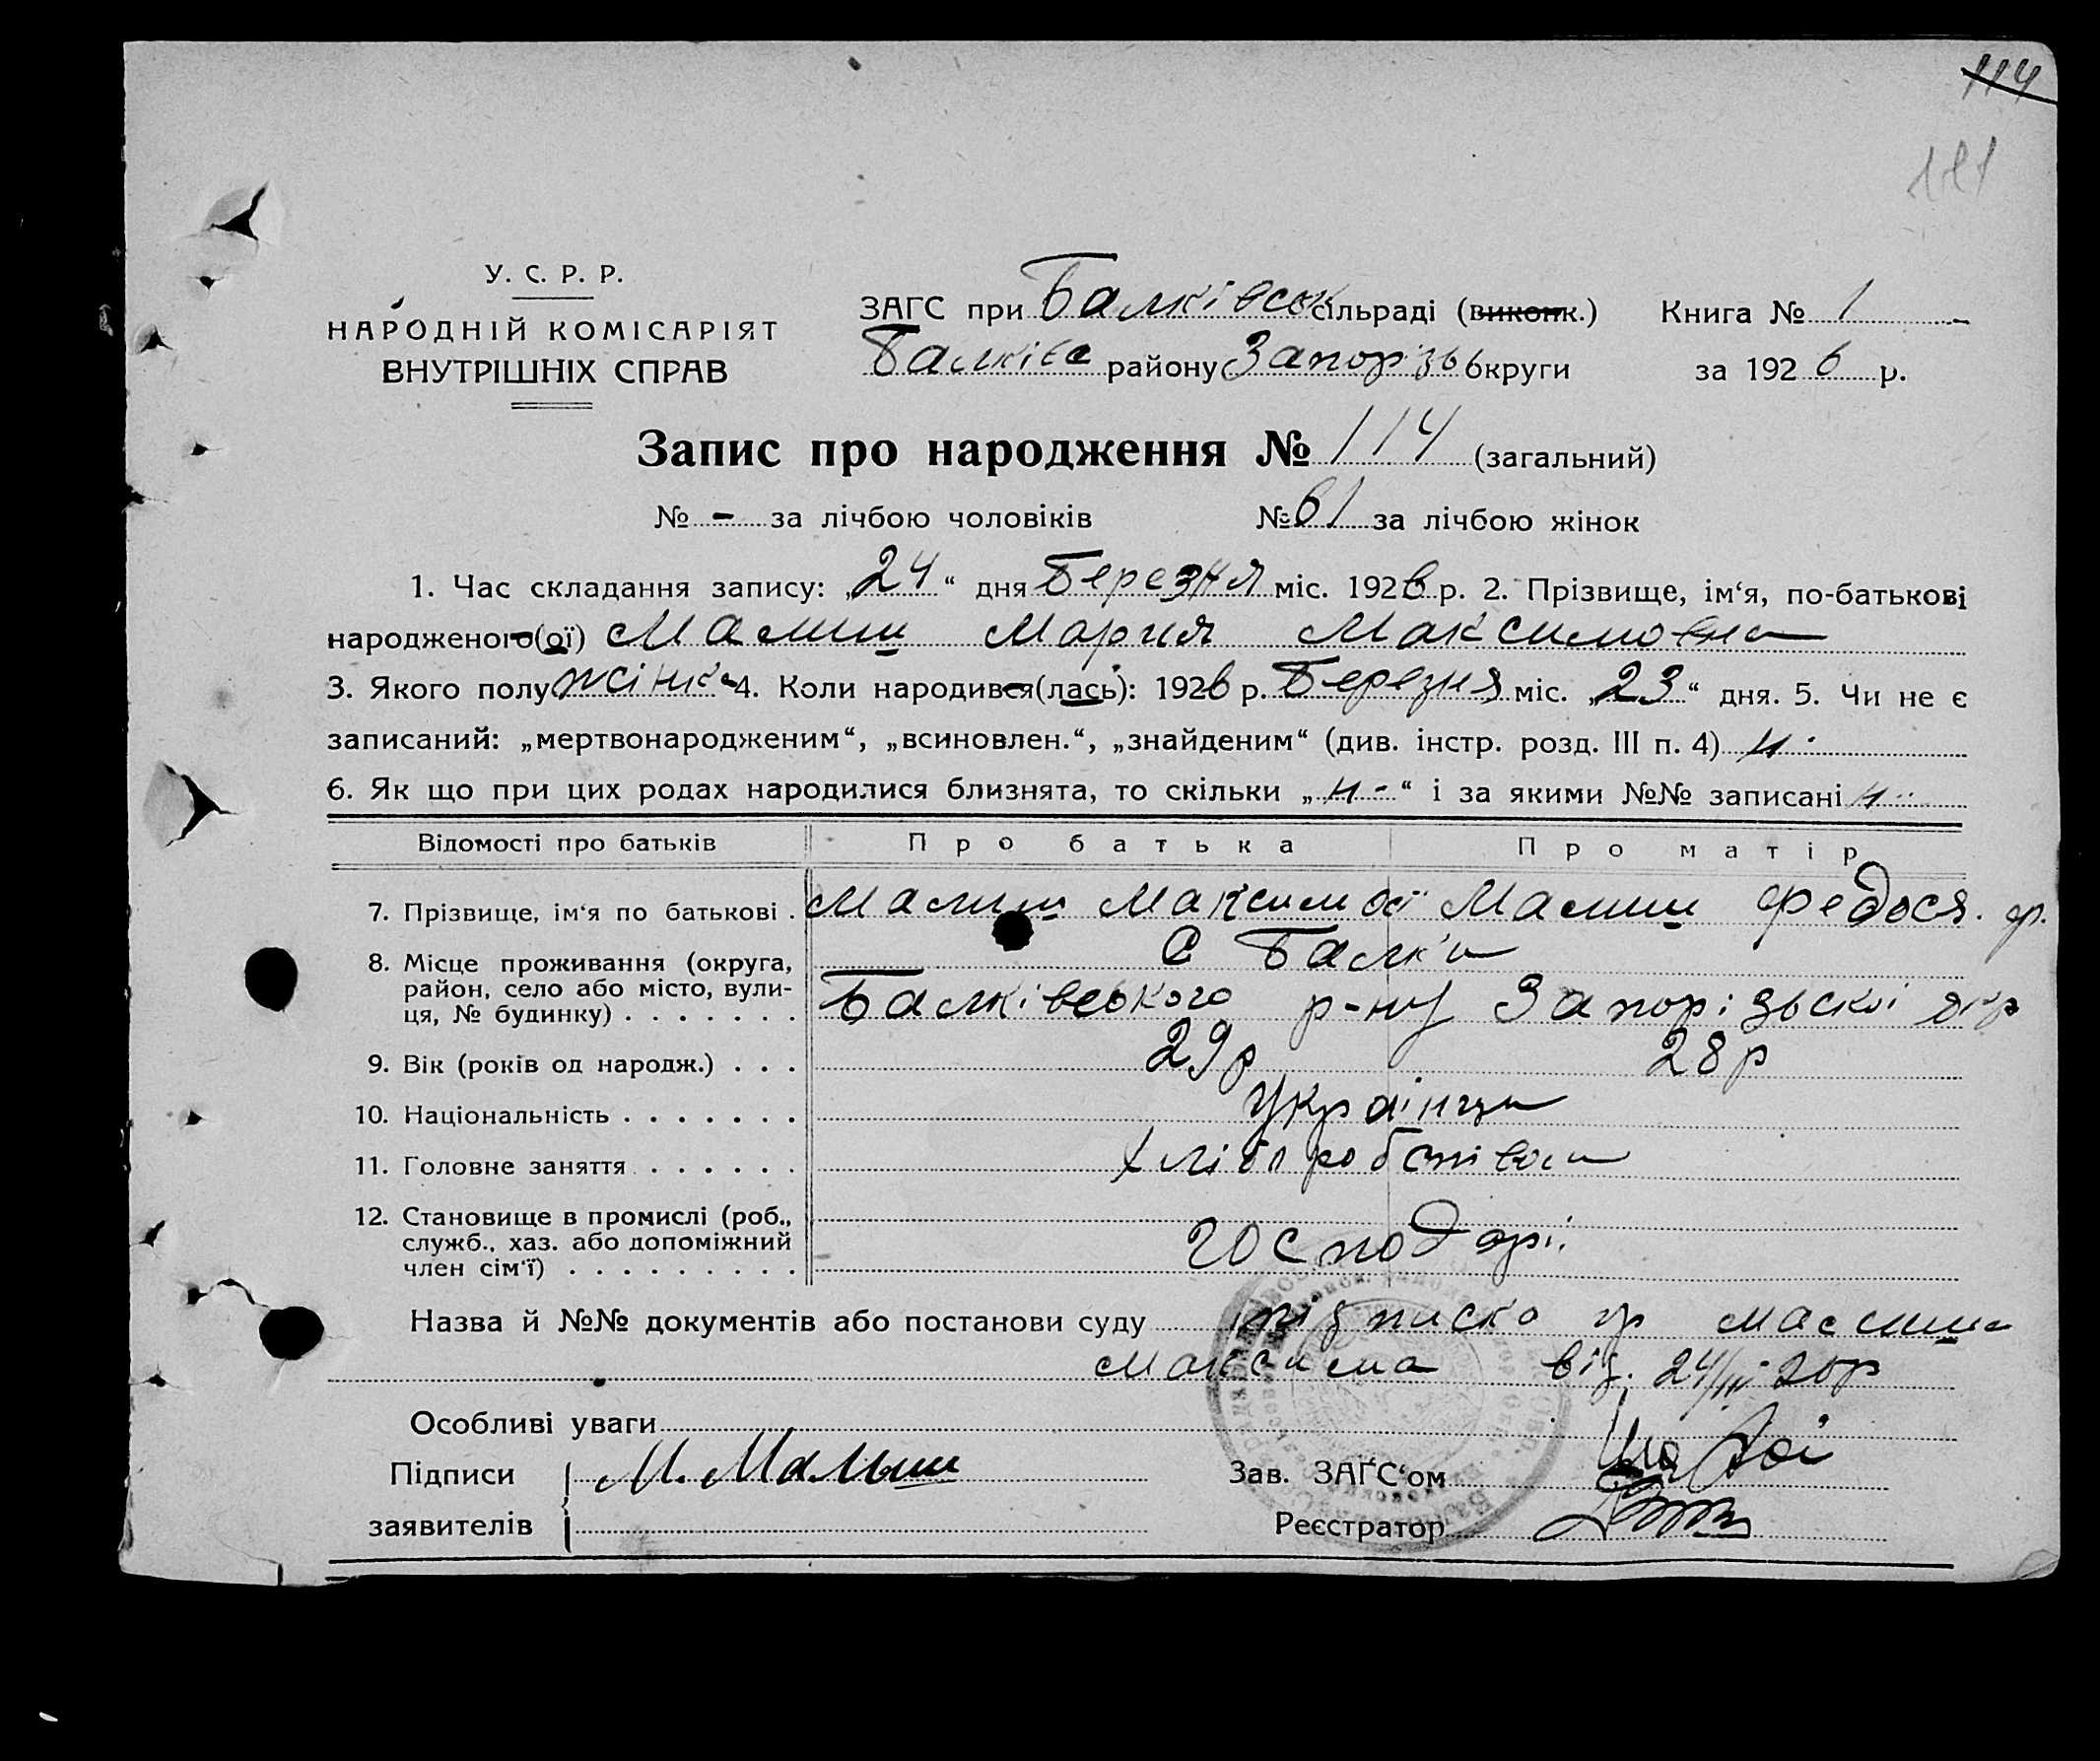 114
У. С. Р. Р.
НАРОДНІЙ КОМІСАРІЯТ
ВНУТРІШНІХ СПРАВ
ЗАГС при Балківськ сільраді (виконк.) Книга № 1
Балківс району Запорізь округи за 1926 р.
Запис про народження № 114 (загальний)
№ - за лічбою чоловіків № 61 за лічбою жінок
1. Час складання запису: „24“ дня Березня міс. 1926 р. 2. Прізвище, ім‘я, по-батькові
народженого(ої) Малиш Мария Максимовна
3. Якого полу жінк. 4. Коли народився(лась): 1926 р. Березня міс. „23“ дня. 5. Чи не є
записаний: „мертвонародженим“, „всиновлен.“, „знайденим“ (див. інстр. розд. III п. 4) н.
6. Як що при цих родах народилися близнята, то скільки „н-“ і за якими №№ записані н..
Відомості про батьків Про батька Про матір
7. Прізвище, ім‘я по батькові . Малиш Максим Малиш Федося. гр.
8. Місце проживання (округа, С Балки
район, село або місто, вули- Балківського р-ну Запорізьскої окр
ця, № будинку) . . . . . . .
9. Вік (років од народж.) . . . 29р 28р
10. Національність . . . . . . . Українци
11. Головне заняття . . . . . . Хліборобство
12. Становище в промислі (роб.,
служб., хаз. або допоміжний господарі.
член сім‘ї) . . . . . . . . .
Назва й №№ документів або постанови суду підписка гр Малиша
Максима від. 24/III 26р
Особливі уваги
Підписи М. Малыш Зав. ЗАГС‘ом
заявителів Реєстратор